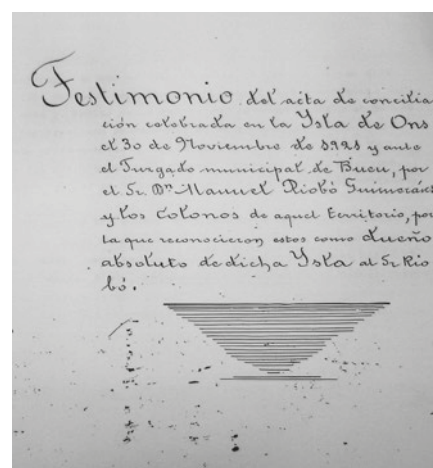 Testimonio del acta de concilia
ción celebrada en la Ysla de Ons
el 30 de Noviembre de 1921 y ante
el Jurgado municipal de Bueu, por
el Sr. Dn Manuel Riobó Guimeráns
y los colonos de aquel territorio, por
la que reconocieron estos como dueño
absoluto de dicha Ysla al Sr Rio
bó.